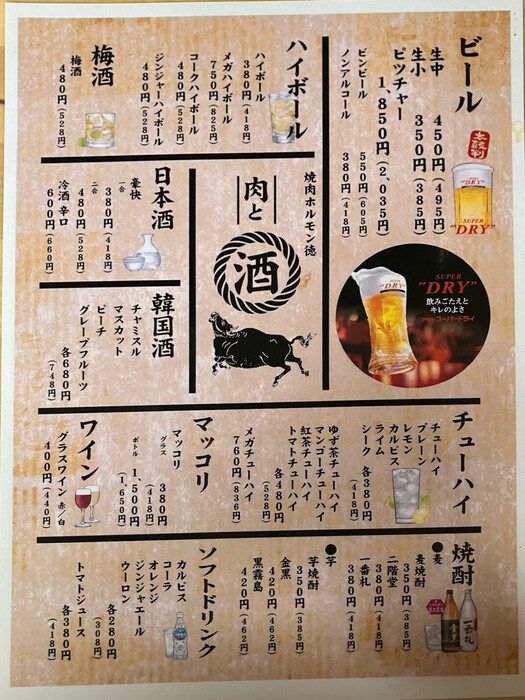 ビール
生中 450円(495円)
生小 350円(385円)
ピッチャー
1,850円(2,035円)
ビンビール 550円(605円)
ノンアルコール 380円(418円)
本数割
SUPER
"DRY"
SUPER
"DRY"
飲みごたえと
キレのよさ
スーパードライ
ハイボール
ハイボール
380円(418円)
メガハイボール
750円(825円)
コークハイボール
480円(528円)
ジンジャーハイボール
480円(528円)
梅酒
梅酒
480円(528円)
焼肉ホルモン徳
肉と
酒
日本酒
豪快
一合 380円(418円)
二合 480円(528円)
冷酒 辛口
600円(660円)
韓国酒
チャミスル
マスカット
ピーチ
グレープフルーツ
各680円
(748円)
チューハイ
チューハイ
プレーン
レモン
カルピス
ライム
シーク 各380円
(418円)
ゆず茶チューハイ
マンゴーチューハイ
紅茶チューハイ
トマトチューハイ
各480円
(528円)
メガチューハイ
760円(836円)
マッコリ
マッコリ
グラス 380円
(418円)
ボトル 1,500円
(1,650円)
ワイン
グラスワイン 赤/白
400円(440円)
焼酎
●麦
麦焼酎 350円(385円)
二階堂 380円(418円)
一番札 380円(418円)
●芋
芋焼酎 350円(385円)
金黒 420円(462円)
黒霧島 420円(462円)
ソフトドリンク
カルピス
コーラ
オレンジ
ジンジャエール
ウーロン 各280円
(308円)
トマトジュース
各380円
(418円)